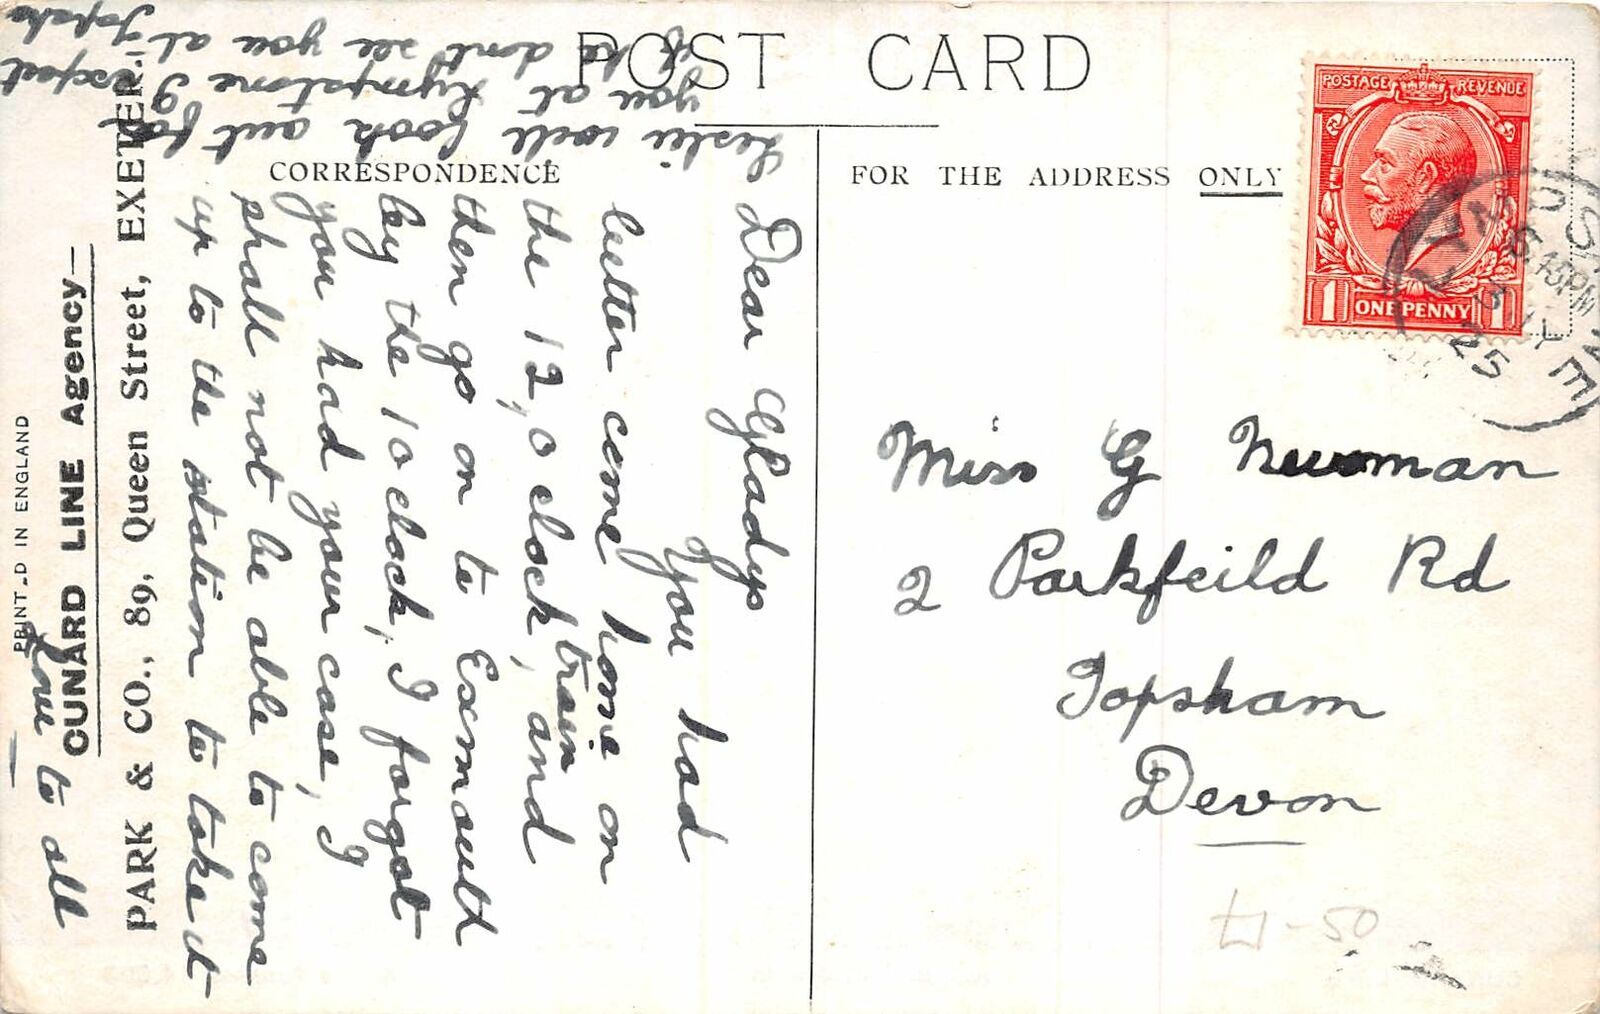 POST CARD
CORRESPONDENCE
FOR THE ADDRESS ONLY
POSTAGE REVENUE
1 ONE PENNY 1
LYMPSTONE
5.15PM
3 JY
25
Miss G Newman
2 Parkfeild Rd
Topsham
Devon
£1-50
Dear Gladys
You had
better come home on
the 12,0 clock, train and
then go on to Exmouth
by the 10 clock, I forgot
you had your case, I
shall not be able to come
up to the station to take it
Leslie will look out for
you at Lympstone I expect
if he dont see you at Topsha
Love to all
PARK & CO., 89, Queen Street, EXETER.
CUNARD LINE Agency
PRINT_D IN ENGLAND